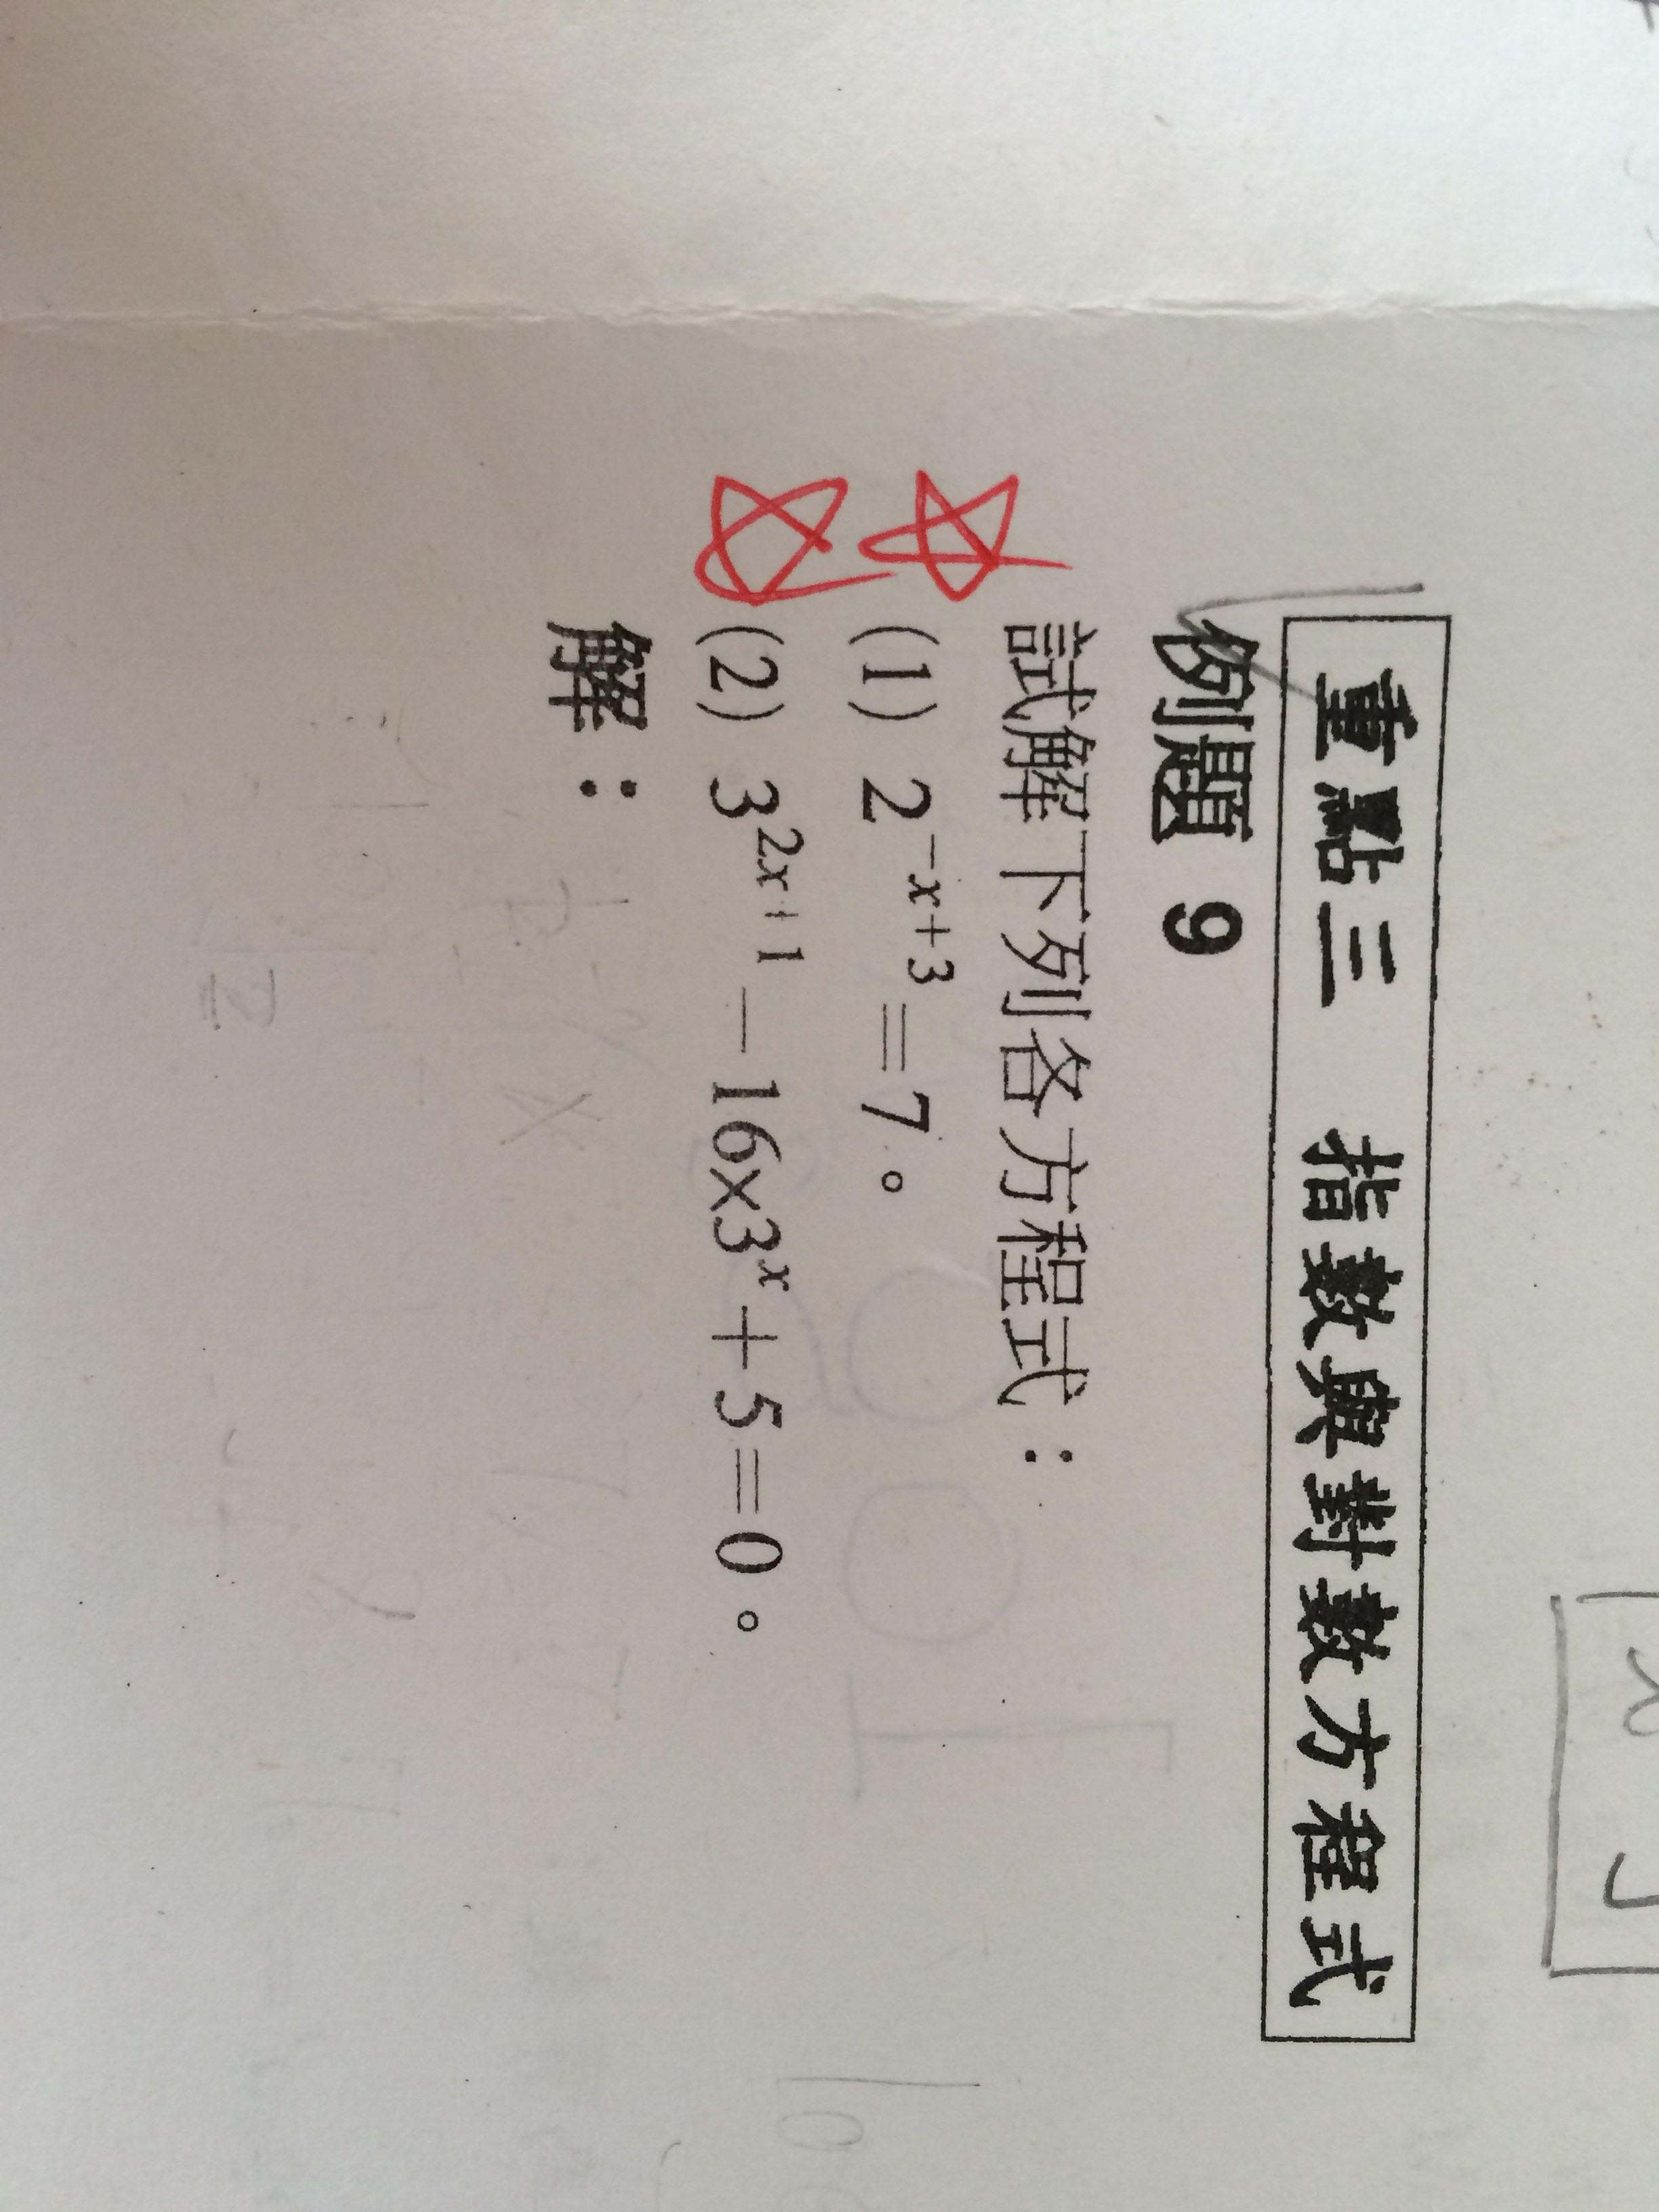 重點三 指數與對數方程式
例題 9
試解下列各方程式：
(1) 2^{-x+3}=7。
(2) 3^{2x+1}－16×3^x＋5＝0。
解：